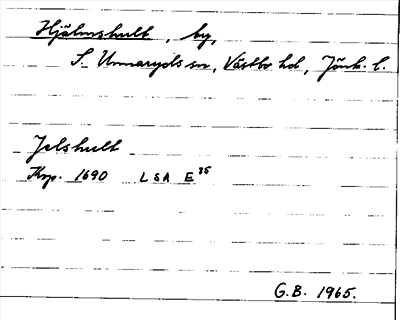 Hjälmshult, by,
S. Unnaryds sn, Västbo hd, Jönk. l.
Jelshult
Krp. 1690 LSA E 35
G.B. 1965.